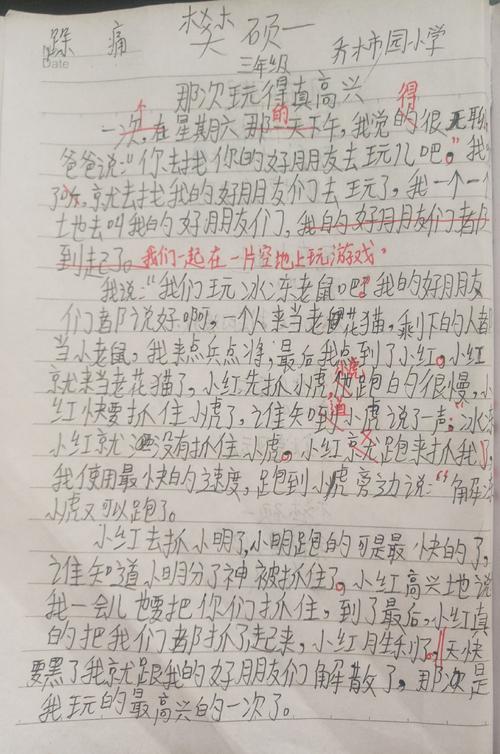 踩 痛 樊硕一 乔木市园小学
Date
三年级
那次玩得真高兴
一次,在星期六那的一天下午,我说的得很无聊
爸爸说:“你去找你的好朋友去玩儿吧。”我
了 就去找我的好朋友们去玩了,我一个一个
土地去叫我的好朋友们,我的好朋友们者
到起了。我们一起在一片空地上玩游戏。
我说:“我们玩冰冻老鼠吧。”我的好朋友
们都说好啊,一个人来当老花猫,剩下的人都
当小老鼠,我来点兵点将,最后我点到了小红。小红
就来当老花猫了,小红先抓小虎,小虎他跑的很慢,小
红快要抓住小虎了,谁知到道小虎说了声:“冰
小红就没有抓住小虎。小红就跑来抓我了,
我使用最快的速度,跑到小虎旁边说:“解
小虎又可以跑了。
小红去抓小明了,小明跑的可是最快的了,
谁知道小明分了神被抓住了。小红高兴地说
我一会儿要把你们抓住,到了最后,小红真
的把我们都抓了起来,小红胜利了。天快
要黑了我就跟我的好朋友们解散了,那次是
我玩的最高兴的一次了。